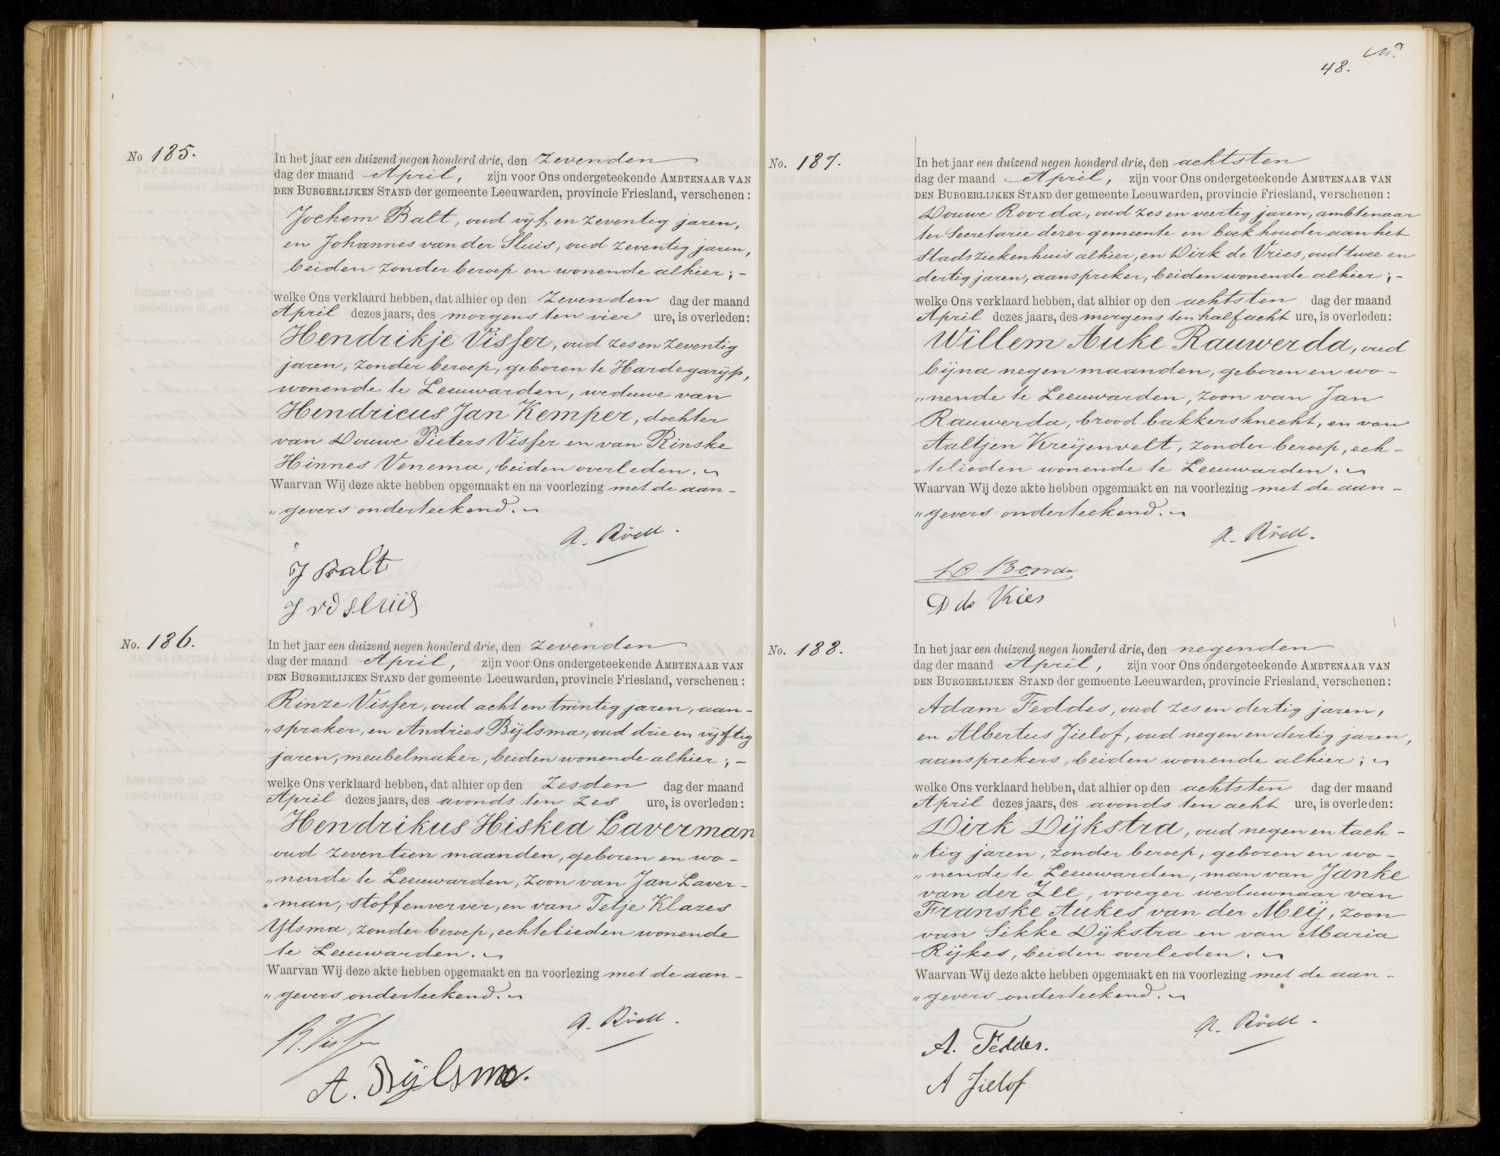 No 185.
In het jaar een duizend negen honderd drie, den zevenden
dag der maand April, zijn voor Ons ondergeteekende AMBTENAAR VAN
DEN BURGERLIJKEN STAND der gemeente Leeuwarden, provincie Friesland, verschenen:
Jochem Balt, oud vijf en zeventig jaren,
en Johannes van der Sluis, oud zeventig jaren,
beiden zonder beroep en wonende alhier; -
welke Ons verklaard hebben, dat alhier op den zevenden dag der maand
April dezes jaars, des morgens ten vier ure, is overleden:
Hendrikje Visser, oud zes en zeventig
jaren, zonder beroep, geboren te Hardegarijp,
wonende te Leeuwarden, weduwe van
Hendricus Jan Kemper, dochter
van Douwe Pieters Visser en van Rinske
Hinnes Venema, beiden overleden.
Waarvan Wij deze akte hebben opgemaakt en na voorlezing met de aan-
"gevers onderteekend.
A. Röell.
J Balt
J vd Sluis
No. 186.
In het jaar een duizend negen honderd drie, den zevenden
dag der maand April, zijn voor Ons ondergeteekende AMBTENAAR VAN
DEN BURGERLIJKEN STAND der gemeente Leeuwarden, provincie Friesland, verschenen:
Rinze Visser, oud acht en twintig jaren, aan-
"spreker, en Andries Bijlsma, oud drie en vijftig
jaren, meubelmaker, beiden wonende alhier; -
welke Ons verklaard hebben, dat alhier op den zesden dag der maand
April dezes jaars, des avonds ten zes ure, is overleden:
Hendrikus Hiskea Laverman
oud zeventien maanden, geboren en wo-
"nende te Leeuwarden, zoon van Jan Laver-
"man, stoffenverver, en van Tetje Klazes
Ytsma, zonder beroep, echtelieden wonende
te Leeuwarden.
Waarvan Wij deze akte hebben opgemaakt en na voorlezing met de aan-
"gevers onderteekend.
A. Röell.
R. Visser
A. Bijlsma.
48.
No. 187.
In het jaar een duizend negen honderd drie, den achtsten
dag der maand April, zijn voor Ons ondergeteekende AMBTENAAR VAN
DEN BURGERLIJKEN STAND der gemeente Leeuwarden, provincie Friesland, verschenen:
Douwe Roorda, oud zes en veertig jaren, ambtenaar
ter Secretarie dezer gemeente en boekhouder aan het
Stadsziekenhuis alhier, en Dirk de Vries, oud twee en
dertig jaren, aanspreker, beiden wonende alhier; -
welke Ons verklaard hebben, dat alhier op den achtsten dag der maand
April dezes jaars, des morgens ten half acht ure, is overleden:
Willem Auke Rauwerda, oud
bijna negen maanden, geboren en wo-
"nende te Leeuwarden, zoon van Jan
Rauwerda, broodbakkersknecht, en van
Aaltjen Kreijenvelt, zonder beroep, ech-
"telieden wonende te Leeuwarden.
Waarvan Wij deze akte hebben opgemaakt en na voorlezing met de aan-
"gevers onderteekend.
A. Röell.
D de Vries
No. 188.
In het jaar een duizend negen honderd drie, den negenden
dag der maand April, zijn voor Ons ondergeteekende AMBTENAAR VAN
DEN BURGERLIJKEN STAND der gemeente Leeuwarden, provincie Friesland, verschenen:
Adam Feddes, oud zes en dertig jaren,
en Albertus Jielof, oud negen en dertig jaren,
aansprekers, beiden wonende alhier;
welke Ons verklaard hebben, dat alhier op den achtsten dag der maand
April dezes jaars, des avonds ten acht ure, is overleden:
Dirk Dijkstra, oud negen en tach-
"tig jaren, zonder beroep, geboren en wo-
"nende te Leeuwarden, man van Janke
van der Zee, vroeger weduwnaar van
Franske Aukes van der Meij, zoon
van Sikke Dijkstra en van Maria
Rijkes, beiden overleden.
Waarvan Wij deze akte hebben opgemaakt en na voorlezing met de aan-
"gevers onderteekend.
A. Röell.
A. Feddes.
A Jielof